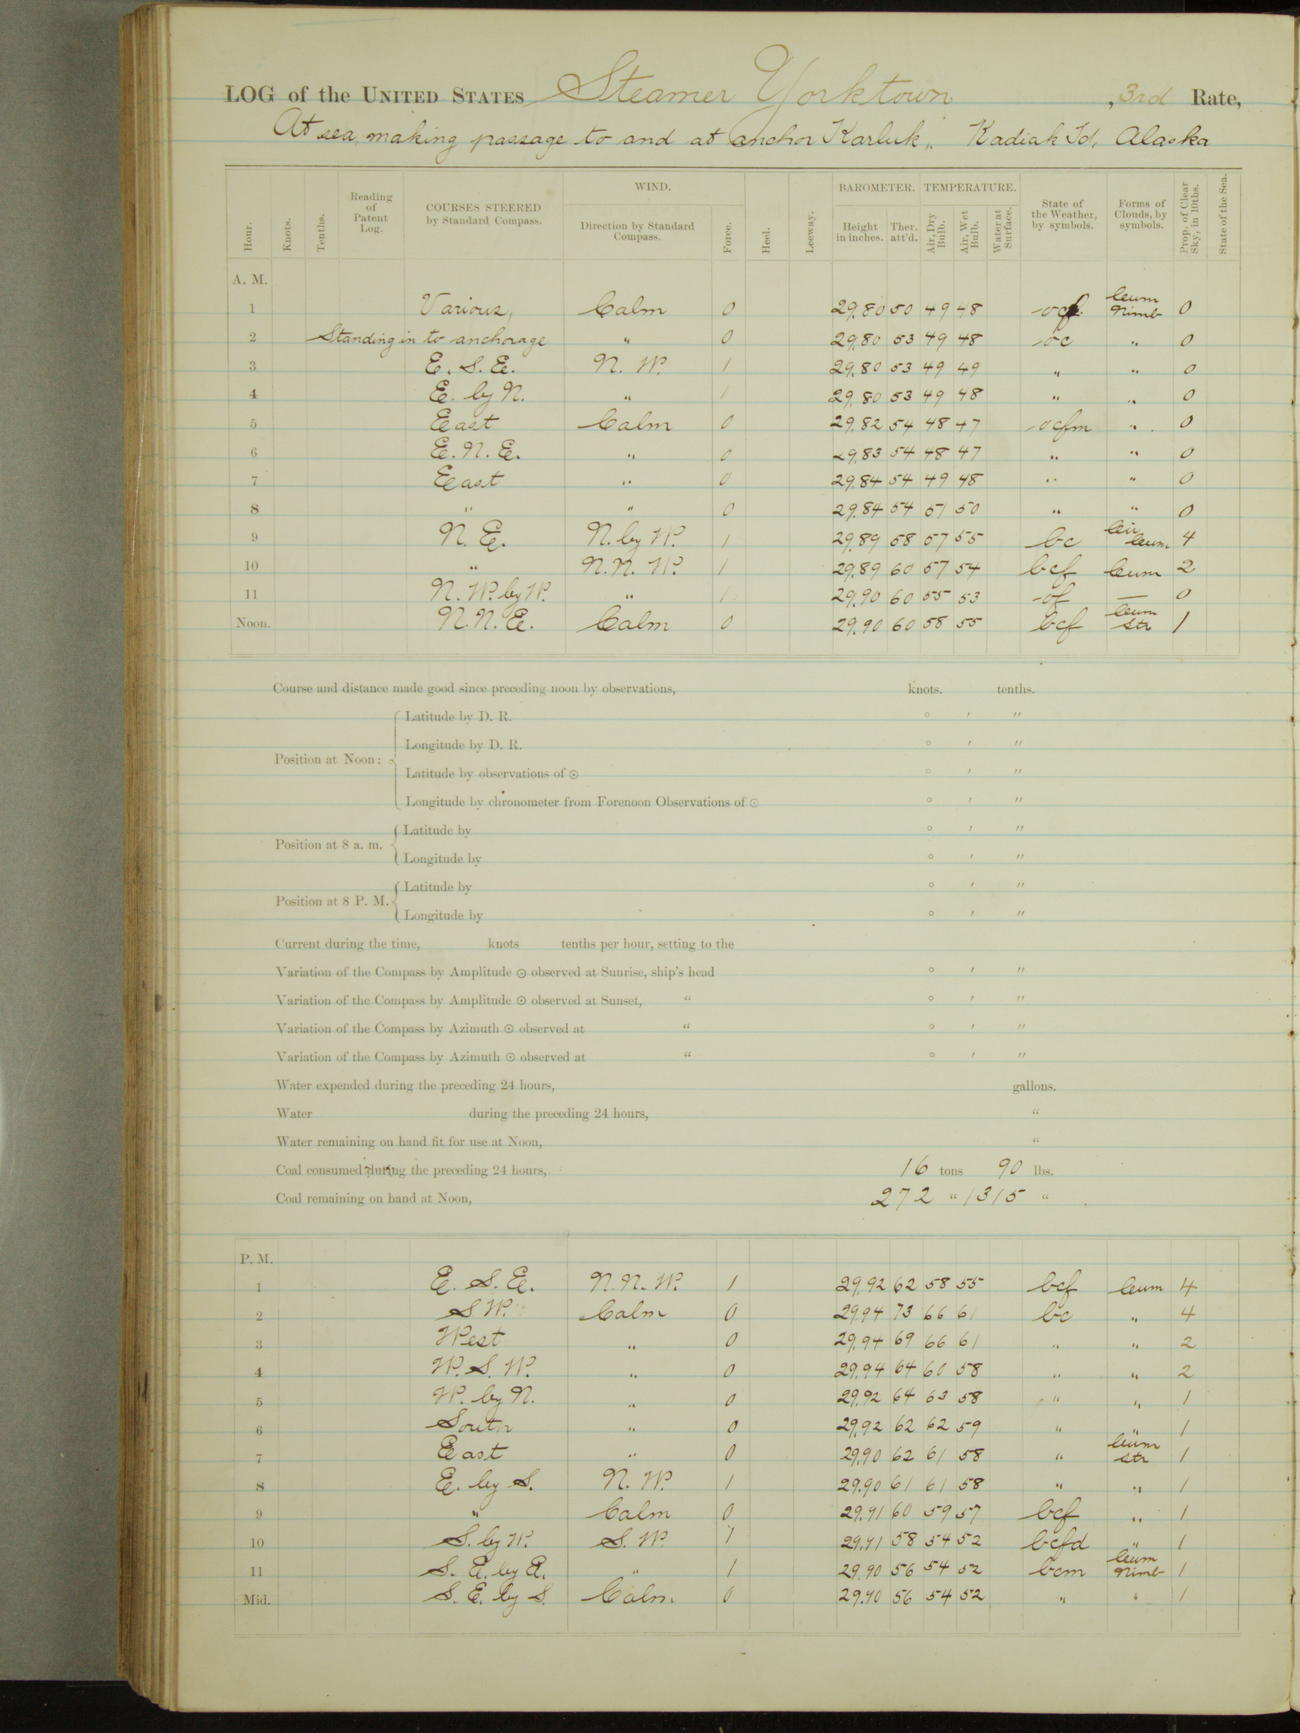 LOG of the UNITED STATES Steamer Yorktown, 3rd Rate,
At sea, making passage to and at anchor Karluk, Kadiak Id, Alaska
Hour. Knots. Tenths. Reading of Patent Log. COURSES STEERED by Standard Compass. WIND. Direction by Standard Compass. Force. Heel. Leeway. BAROMETER. Height in inches. Ther. att'd. TEMPERATURE. Air, Dry Bulb. Air, Wet Bulb. Water at Surface. State of the Weather, by symbols. Forms of Clouds, by symbols. Prop. of Clear Sky, in 10ths. State of the Sea.
A. M.
1 Various, Calm 0 29.80 50 49 48 Cum Nimb 0
2 Standing in to anchorage " 0 29.80 53 49 48 oc " 0
3 E. S. E. N. W. 1 29.80 53 49 49 " " 0
4 E. by N. " 1 29.80 53 49 48 " " 0
5 East Calm 0 29.82 54 48 47 ocfm " 0
6 E. N. E. " 0 29.83 54 48 47 " " 0
7 East " 0 29.84 54 49 48 " " 0
8 " " 0 29.84 54 51 50 " " 0
9 N. E. N. by W. 1 29.89 58 57 55 bc Cir Cum 4
10 " N. N. W. 1 29.89 60 57 54 bcf Cum 2
11 N. W. by W. " 1 29.90 60 55 53 of — 0
Noon. N. N. E. Calm 0 29.90 60 58 55 bcf Cum Str 1
Course and distance made good since preceding noon by observations, knots. tenths.
Position at Noon: Latitude by D. R. ° ′ ″
Longitude by D. R. ° ′ ″
Latitude by observations of ☉ ° ′ ″
Longitude by chronometer from Forenoon Observations of ☉ ° ′ ″
Position at 8 a. m. Latitude by ° ′ ″
Longitude by ° ′ ″
Position at 8 P. M. Latitude by ° ′ ″
Longitude by ° ′ ″
Current during the time, knots tenths per hour, setting to the
Variation of the Compass by Amplitude ☉ observed at Sunrise, ship's head ° ′ ″
Variation of the Compass by Amplitude ☉ observed at Sunset, " ° ′ ″
Variation of the Compass by Azimuth ☉ observed at " ° ′ ″
Variation of the Compass by Azimuth ☉ observed at " ° ′ ″
Water expended during the preceding 24 hours, gallons.
Water during the preceding 24 hours, "
Water remaining on hand fit for use at Noon, "
Coal consumed during the preceding 24 hours, 16 tons 90 lbs.
Coal remaining on hand at Noon, 272 " 1315 "
P. M.
1 E. S. E. N. N. W. 1 29.92 62 58 55 bcf Cum 4
2 S W. Calm 0 29.94 73 66 61 bc " 4
3 West " 0 29.94 69 66 61 " " 2
4 W. S. W. " 0 29.94 64 60 58 " " 2
5 W. by N. " 0 29.92 64 63 58 " " 1
6 South " 0 29.92 62 62 59 " " 1
7 East " 0 29.90 62 61 58 " Cum Str 1
8 E. by S. N. W. 1 29.90 61 61 58 " " 1
9 " Calm 0 29.91 60 59 57 bcf " 1
10 S. by W. S. W. 1 29.91 58 54 52 bcfd " 1
11 S. E. by E. " 1 29.90 56 54 52 bcm Cum Nimb 1
Mid. S. E. by S. Calm. 0 29.90 56 54 52 " " 1